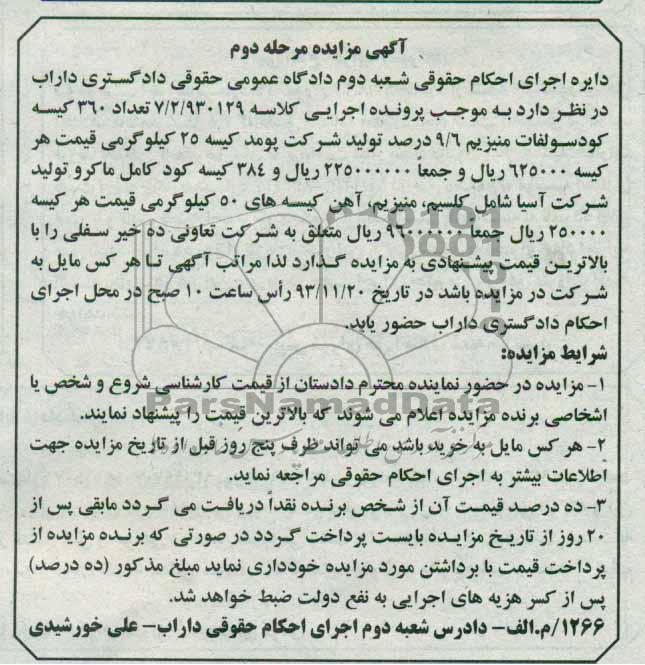 آگهی مزایده مرحله دوم
دایره اجرای احکام حقوقی شعبه دوم دادگاه عمومی حقوقی دادگستری داراب
در نظر دارد به موجب پرونده اجرایی کلاسه ۷/۲/۹۳۰۱۲۹ تعداد ۳۶۰ کیسه
کودسولفات منیزیم ۹/۶ درصد تولید شرکت پومد کیسه ۲۵ کیلوگرمی قیمت هر
کیسه ۶۲۵۰۰۰ ریال و جمعاً ۲۲۵۰۰۰۰۰۰ ریال و ۳۸۴ کیسه کود کامل ماکرو تولید
شرکت آسیا شامل کلسیم، منیزیم، آهن کیسه های ۵۰ کیلوگرمی قیمت هر کیسه
۲۵۰۰۰۰ ریال جمعاً ۹۶۰۰۰۰۰۰ ریال متعلق به شرکت تعاونی ده خیر سفلی را با
بالاترین قیمت پیشنهادی به مزایده گذارد لذا مراتب آگهی تا هر کس مایل به
شرکت در مزایده باشد در تاریخ ۹۳/۱۱/۲۰ رأس ساعت ۱۰ صبح در محل اجرای
احکام دادگستری داراب حضور یابد.
شرایط مزایده:
۱- مزایده در حضور نماینده محترم دادستان از قیمت کارشناسی شروع و شخص یا
اشخاصی برنده مزایده اعلام می شوند که بالاترین قیمت را پیشنهاد نمایند.
ParsNamadData
۲- هر کس مایل به خرید باشد می تواند ظرف پنج روز قبل از تاریخ مزایده جهت
اطلاعات بیشتر به اجرای احکام حقوقی مراجعه نماید.
۳- ده درصد قیمت آن از شخص برنده نقداً دریافت می گردد مابقی پس از
۲۰ روز از تاریخ مزایده بایست پرداخت گردد در صورتی که برنده مزایده از
پرداخت قیمت با برداشتن مورد مزایده خودداری نماید مبلغ مذکور (ده درصد)
پس از کسر هزیه های اجرایی به نفع دولت ضبط خواهد شد.
۱۲۶۶/م.الف- دادرس شعبه دوم اجرای احکام حقوقی داراب- علی خورشیدی